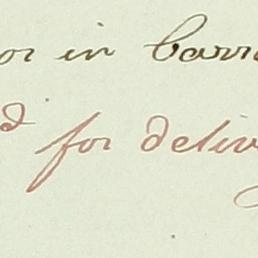 or in barr
d for deliv